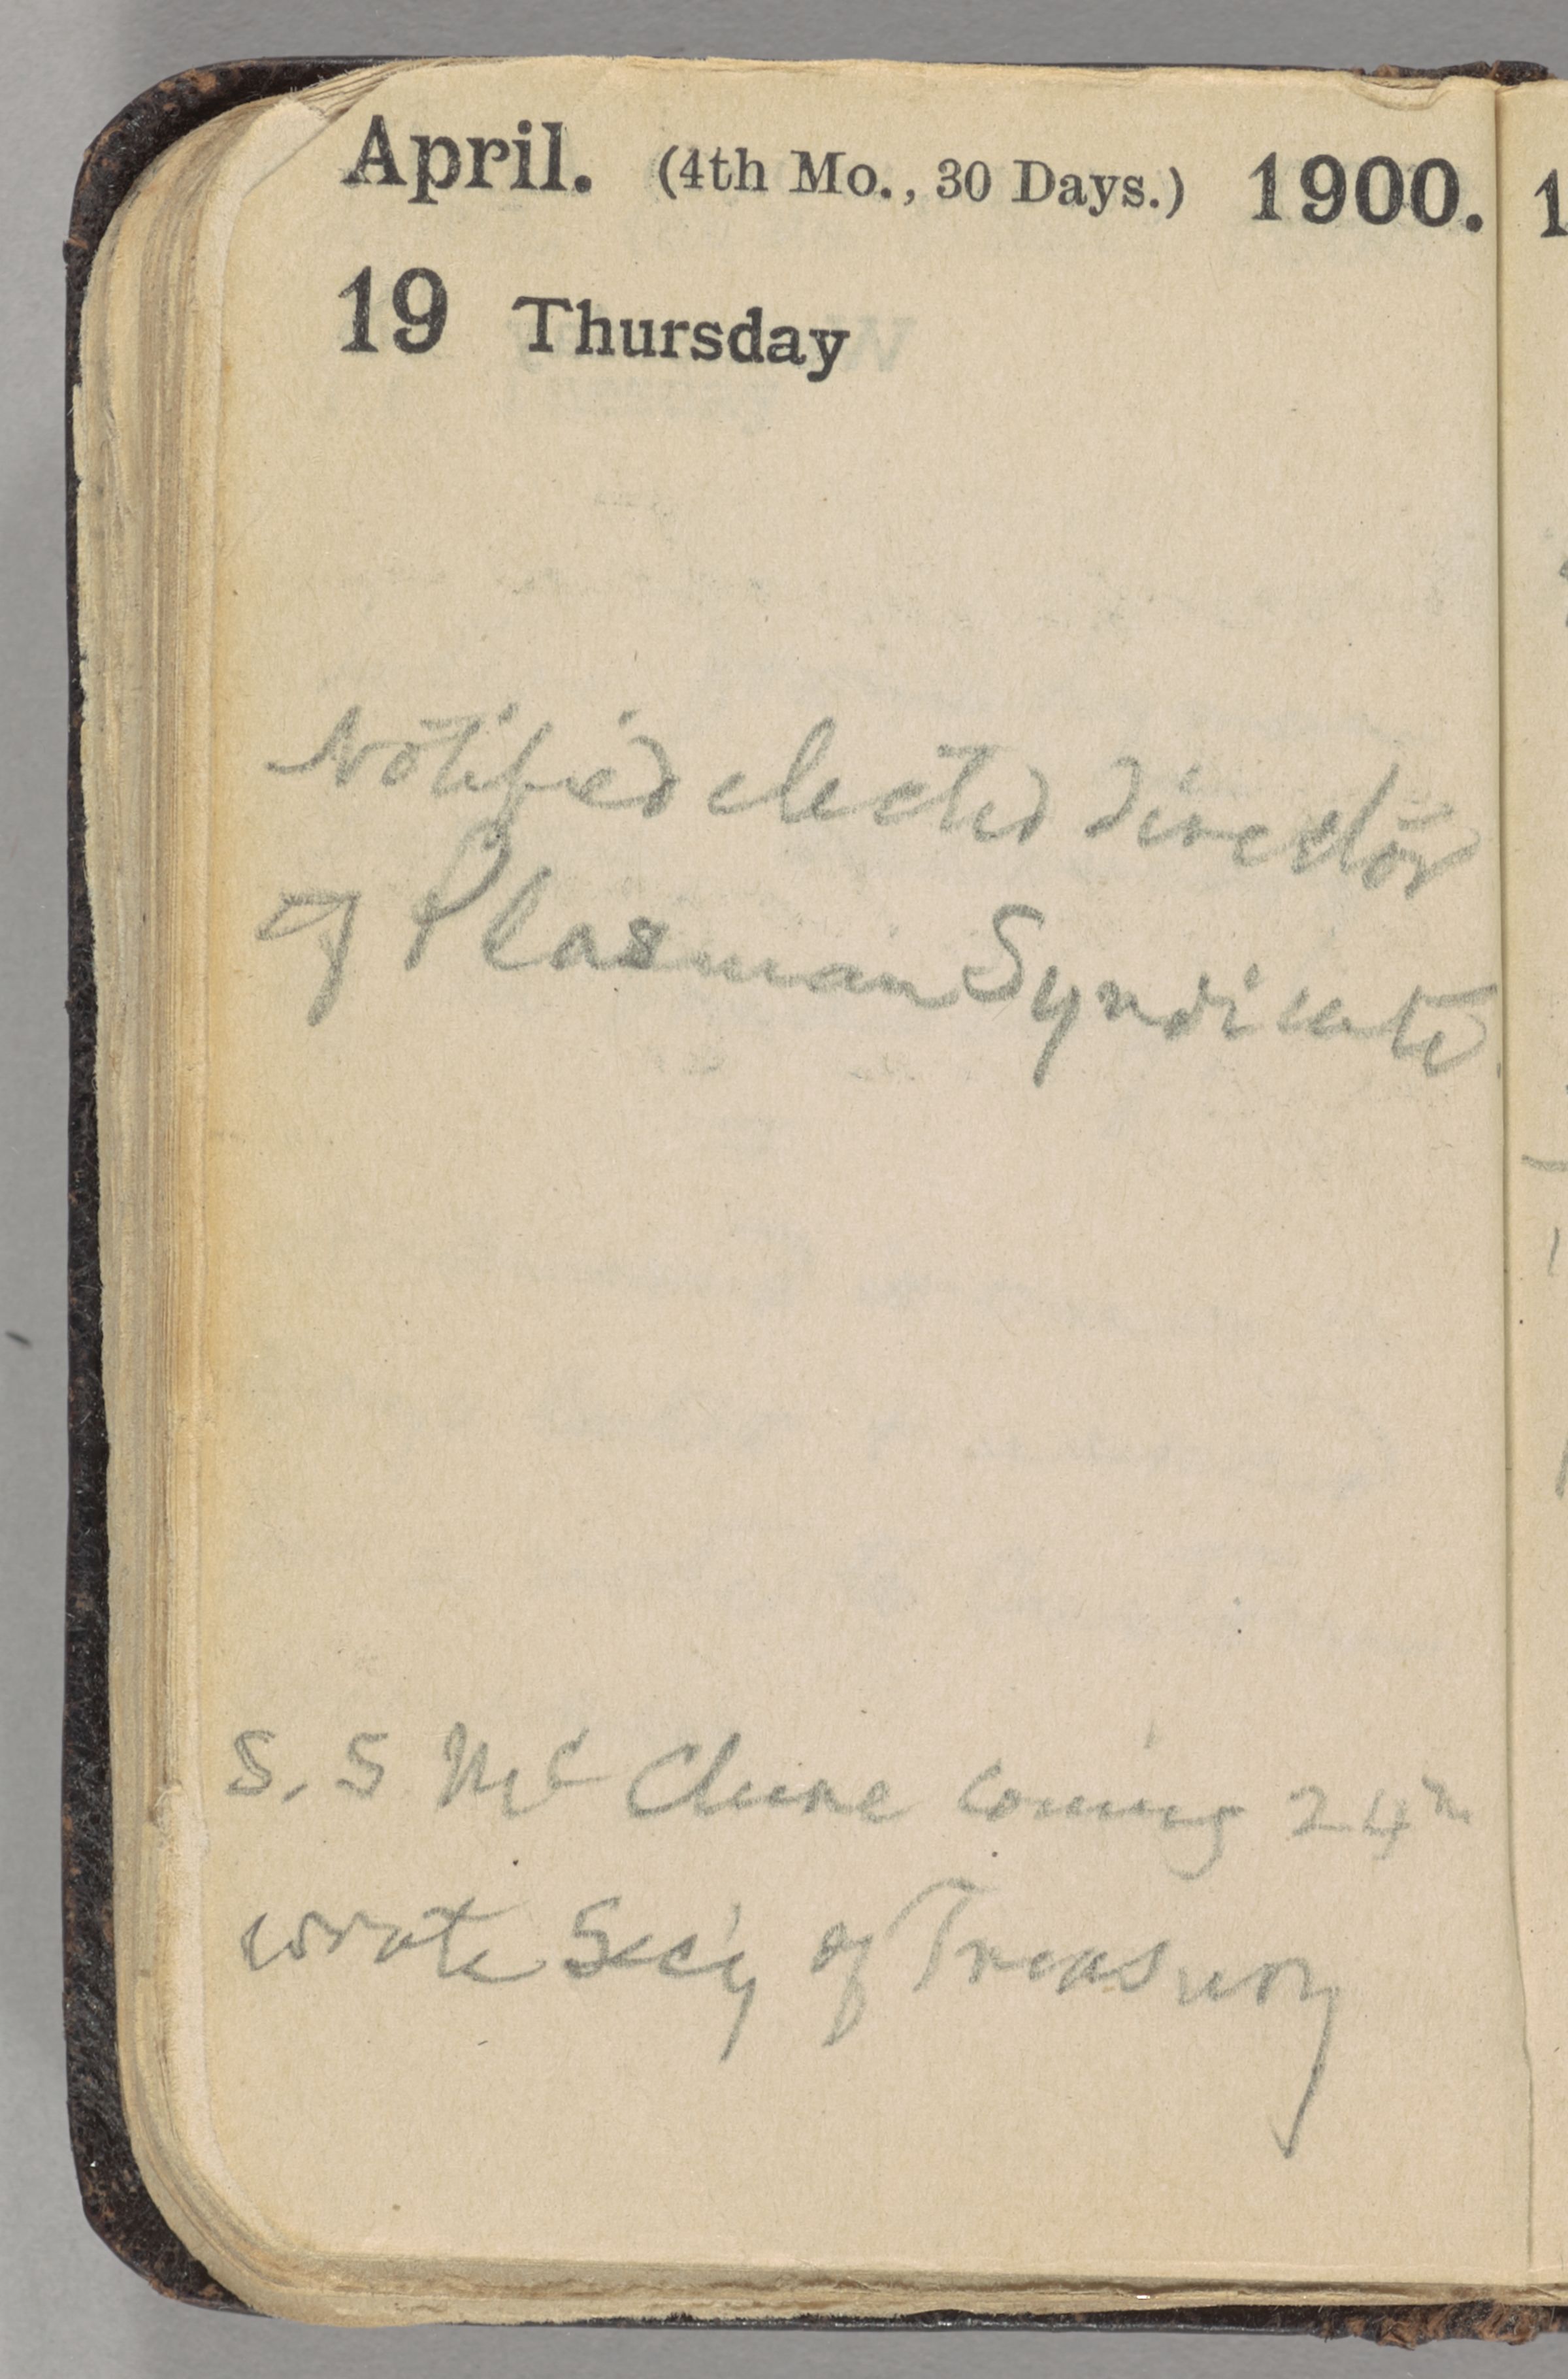 April. (4th Mo., 30 Days.) 1900.
19 Thursday
Notified elected director
of Plasman Syndicate.
S. S McClure coming 24th
wrote Sec'y of Treasury